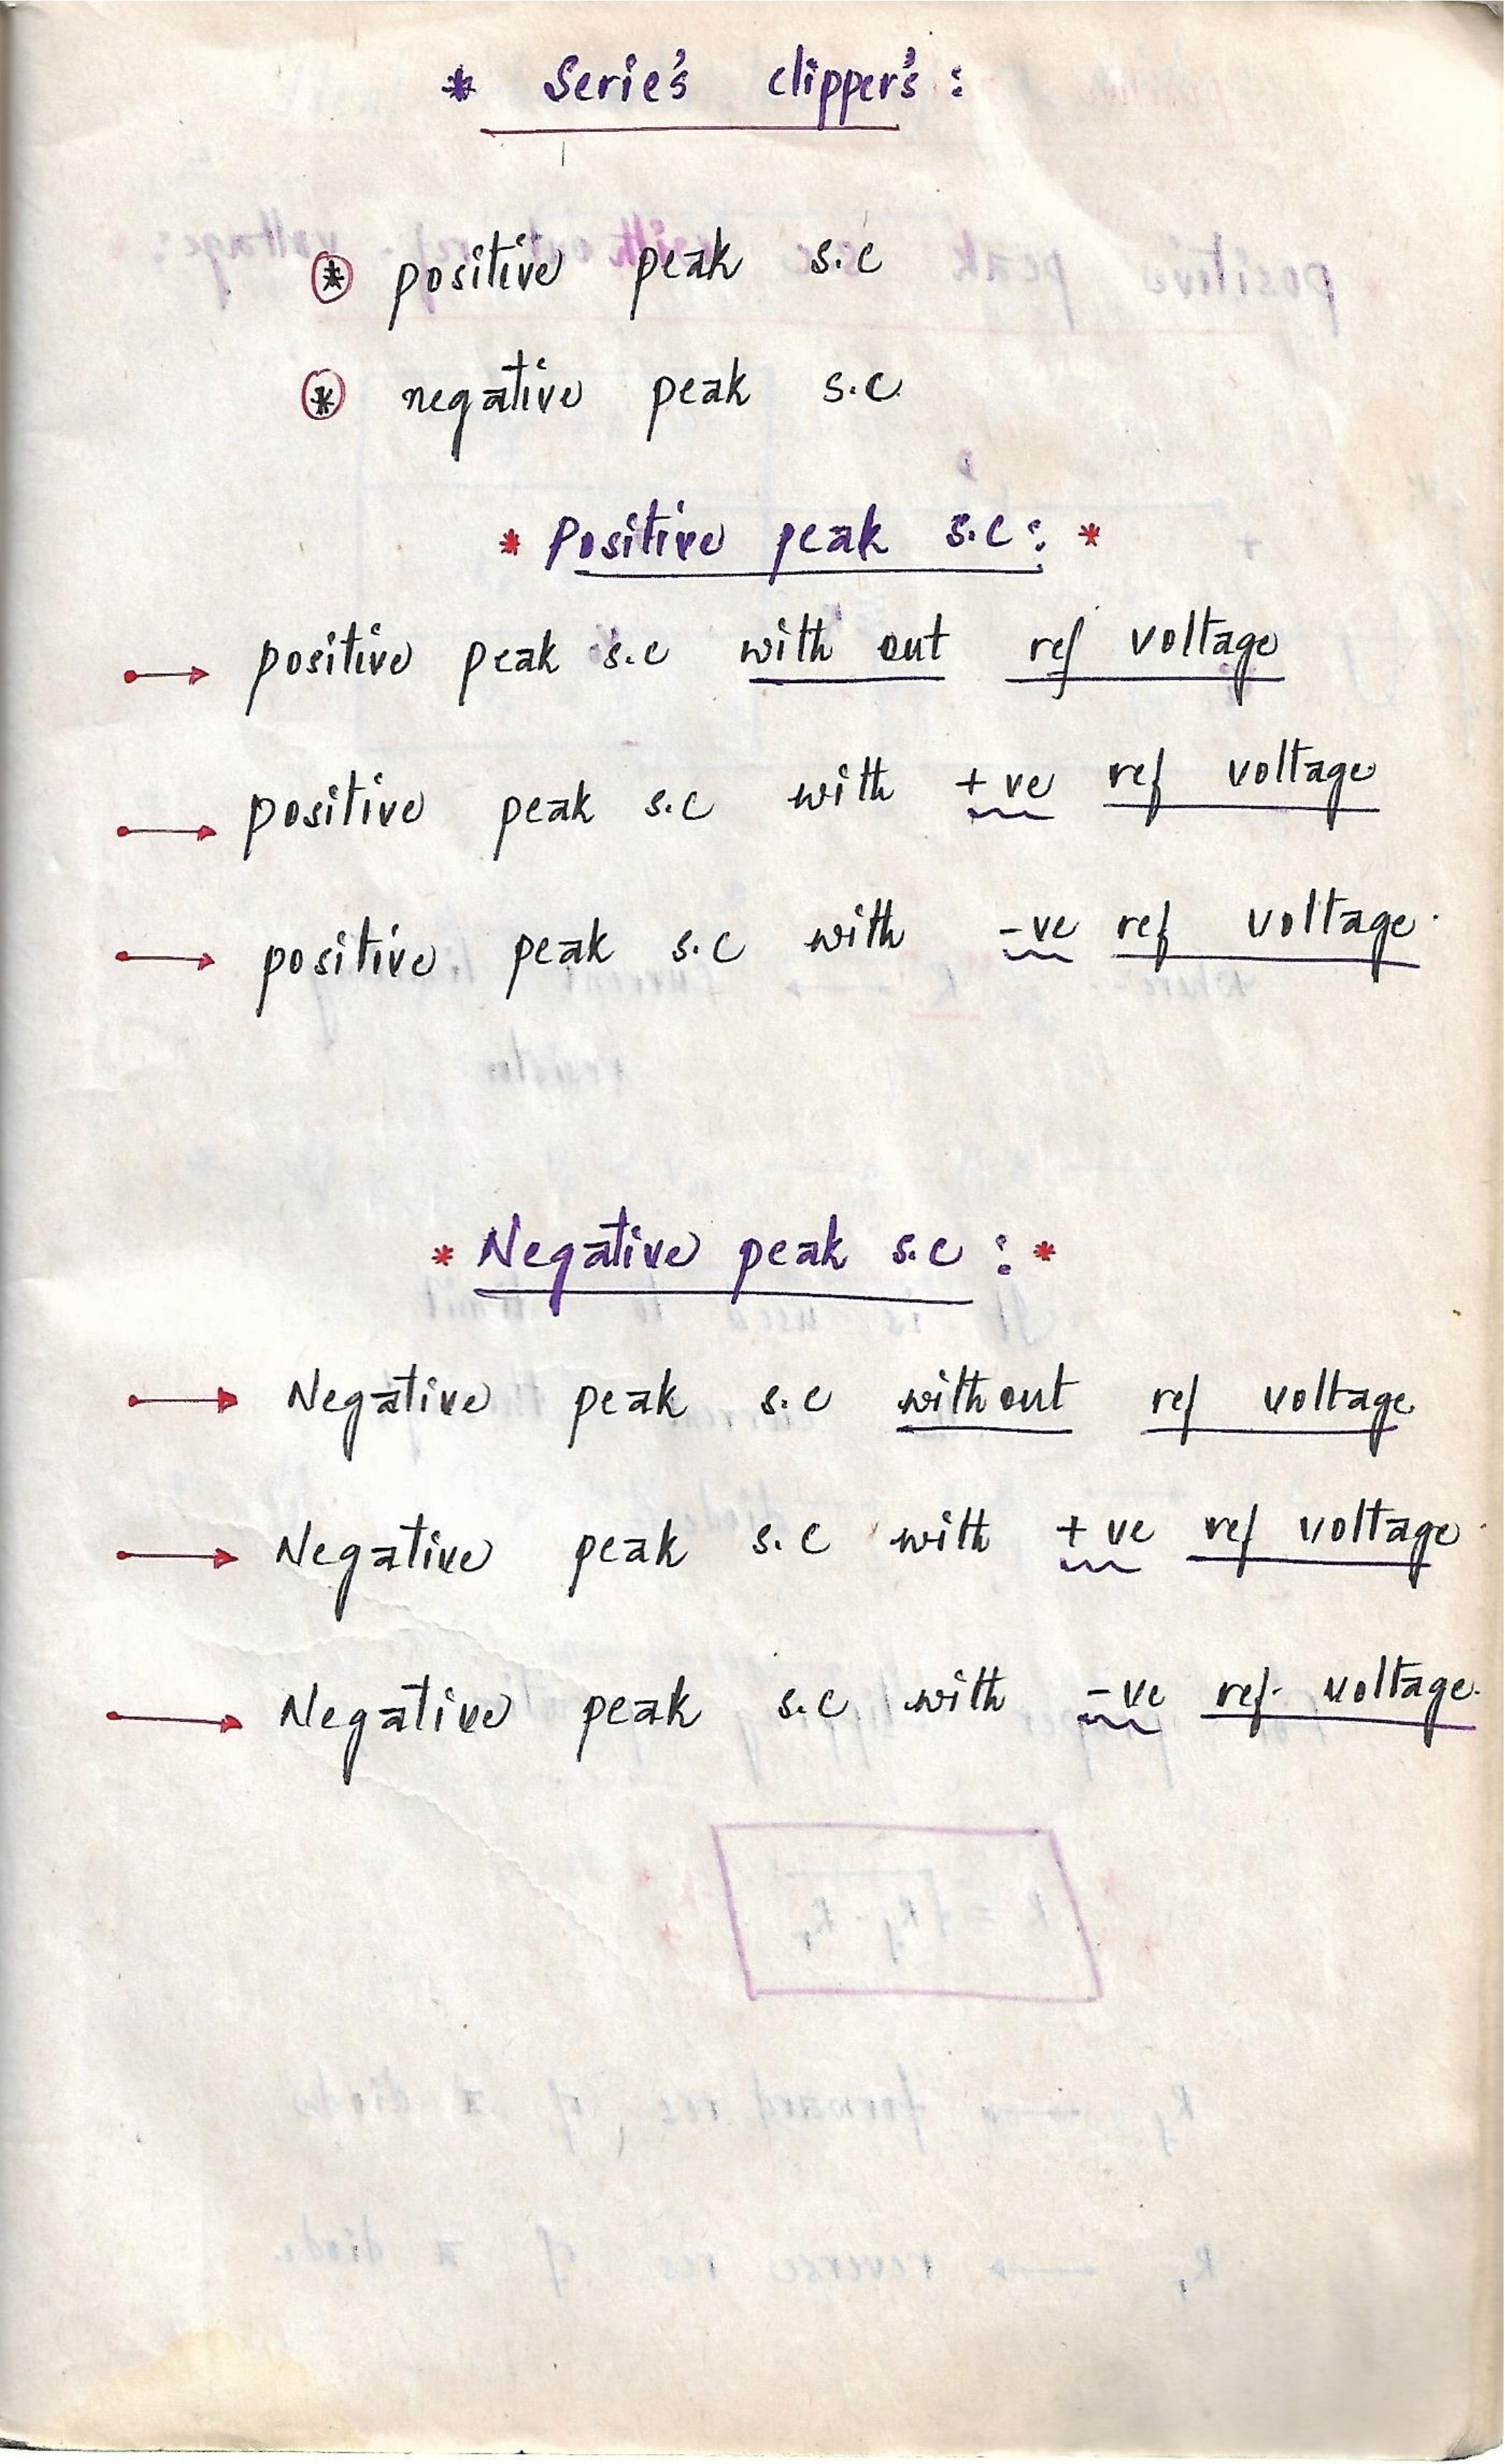 * Serie's clipper's :
* positive peak s.c
* negative peak s.c
* Positive peak s.c : *
→ positive peak s.c with out ref voltage
→ positive peak s.c with +ve ref voltage
→ positive peak s.c with -ve ref voltage.
* Negative peak s.c : *
→ Negative peak s.c without ref voltage.
→ Negative peak s.c with +ve ref voltage.
→ Negative peak s.c with -ve ref. voltage.